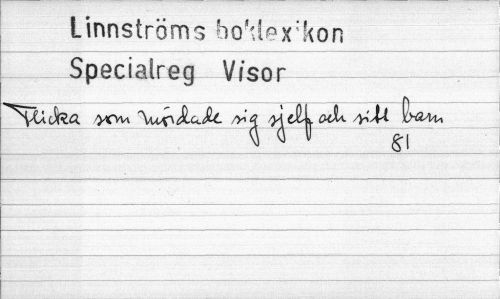 Linnströms boklexikon
Specialreg Visor
Flicka som mördade sig sjelf och sitt barn
81